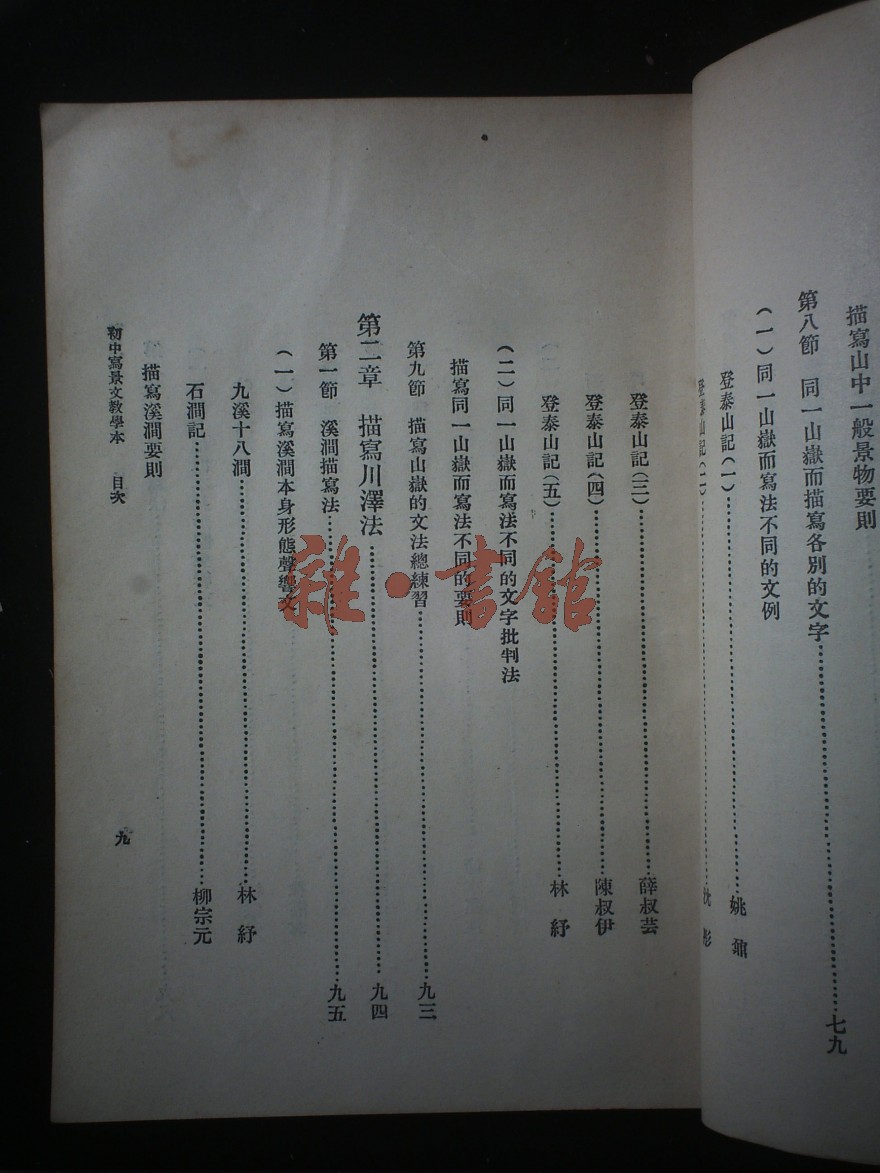 描寫山中一般景物要則
第八節 同一山嶽而描寫各別的文字……七九
(一)同一山嶽而寫法不同的文例
登泰山記(一)……姚鼐
登泰山記(二)……沈彤
登泰山記(三)……薛叔芸
登泰山記(四)……陳叔伊
登泰山記(五)……林紓
(二)同一山嶽而寫法不同的文字批判法
描寫同一山嶽而寫法不同的要則
第九節 描寫山嶽的文法總練習……九三
第二章 描寫川澤法……九四
第一節 溪澗描寫法……九五
(一)描寫溪澗本身形態聲響文
九溪十八澗……林紓
石澗記……柳宗元
描寫溪澗要則
初中寫景文教學本 目次
九
雜·書館